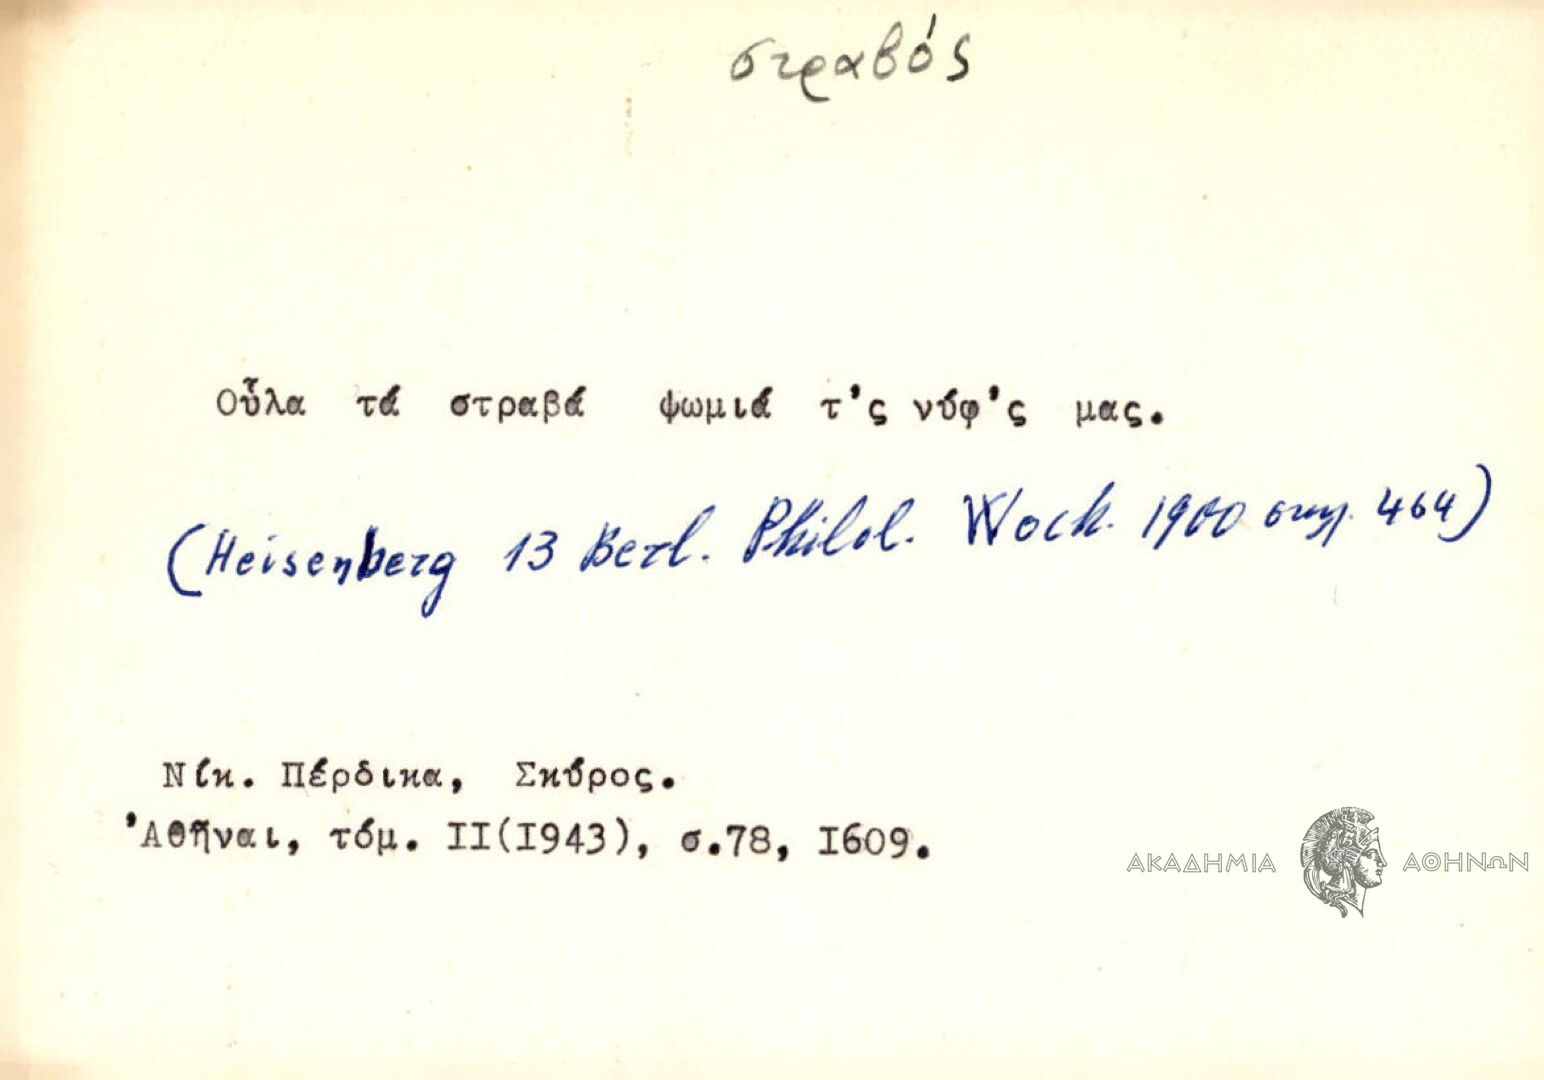 στραβός
Οὖλα τά στραβά ψωμιά τ'ς νύφ'ς μας.
(Heisenberg 13 Berl. Philol. Woch. 1900 σελ. 464)
Νίκ. Πέρδικα, Σκύρος.
'Αθῆναι, τόμ. ΙΙ(Ι943), σ.78, Ι609.
ΑΚΑΔΗΜΙΑ ΑΘΗΝΩΝ